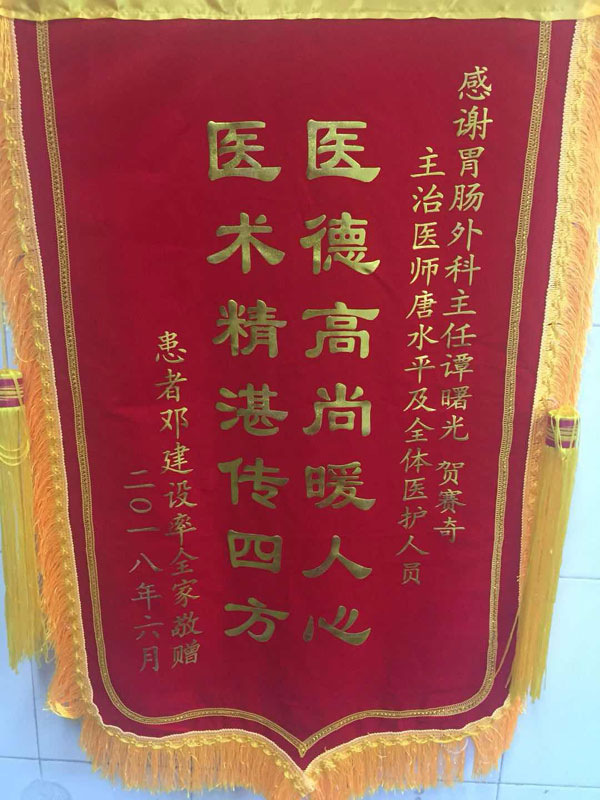 感谢胃肠外科主任谭曙光 贺赛奇
主治医师唐水平及全体医护人员
医德高尚暖人心
医术精湛传四方
患者邓建设率全家敬赠
二〇一八年六月